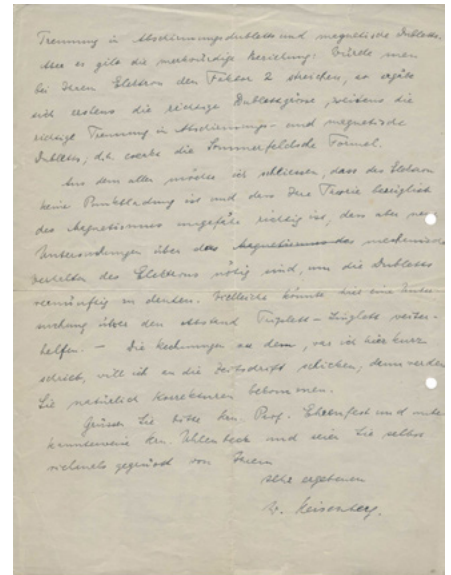 Trennung in Abschirmungsdubletts und magnetische Dubletts.
Aber es gibt die merkwürdige Beziehung: Würde man
bei Ihrem Elektron den Faktor 2 streichen, so ergäbe
sich erstens die richtige Dublettgrösse, zweitens die
richtige Trennung in Abschirmungs- und magnetische
Dubletts, d.h. exakt die Sommerfeldsche Formel.
Aus dem allen möchte ich schliessen, dass das Elektron
keine Punktladung ist und dass Ihre Theorie bezüglich
des Magnetismus ungefähr richtig ist, dass aber
Untersuchungen über das Magnetismus das mechanische
Verhalten des Elektrons nötig sind, um die Dubletts
vernünftig zu deuten. Vielleicht könnte hier eine Unter-
suchung über den Abstand Triplett – Singulett weiter-
helfen. – Die Rechnungen zu dem, was ich hier kurz
schrieb, will ich an die Zeitschrift schicken, dann werden
Sie natürlich Korrekturen bekommen.
Grüssen Sie bitte Hrn. Prof. Ehrenfest und unbe-
kannterweise Hrn. Uhlenbeck und seien Sie selbst
vielmals gegrüsst von Ihrem
sehr ergebenen
W. Heisenberg.